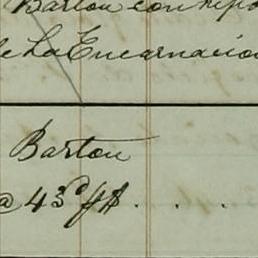 Barton con
de La Encarnacion
Barton
@ 43